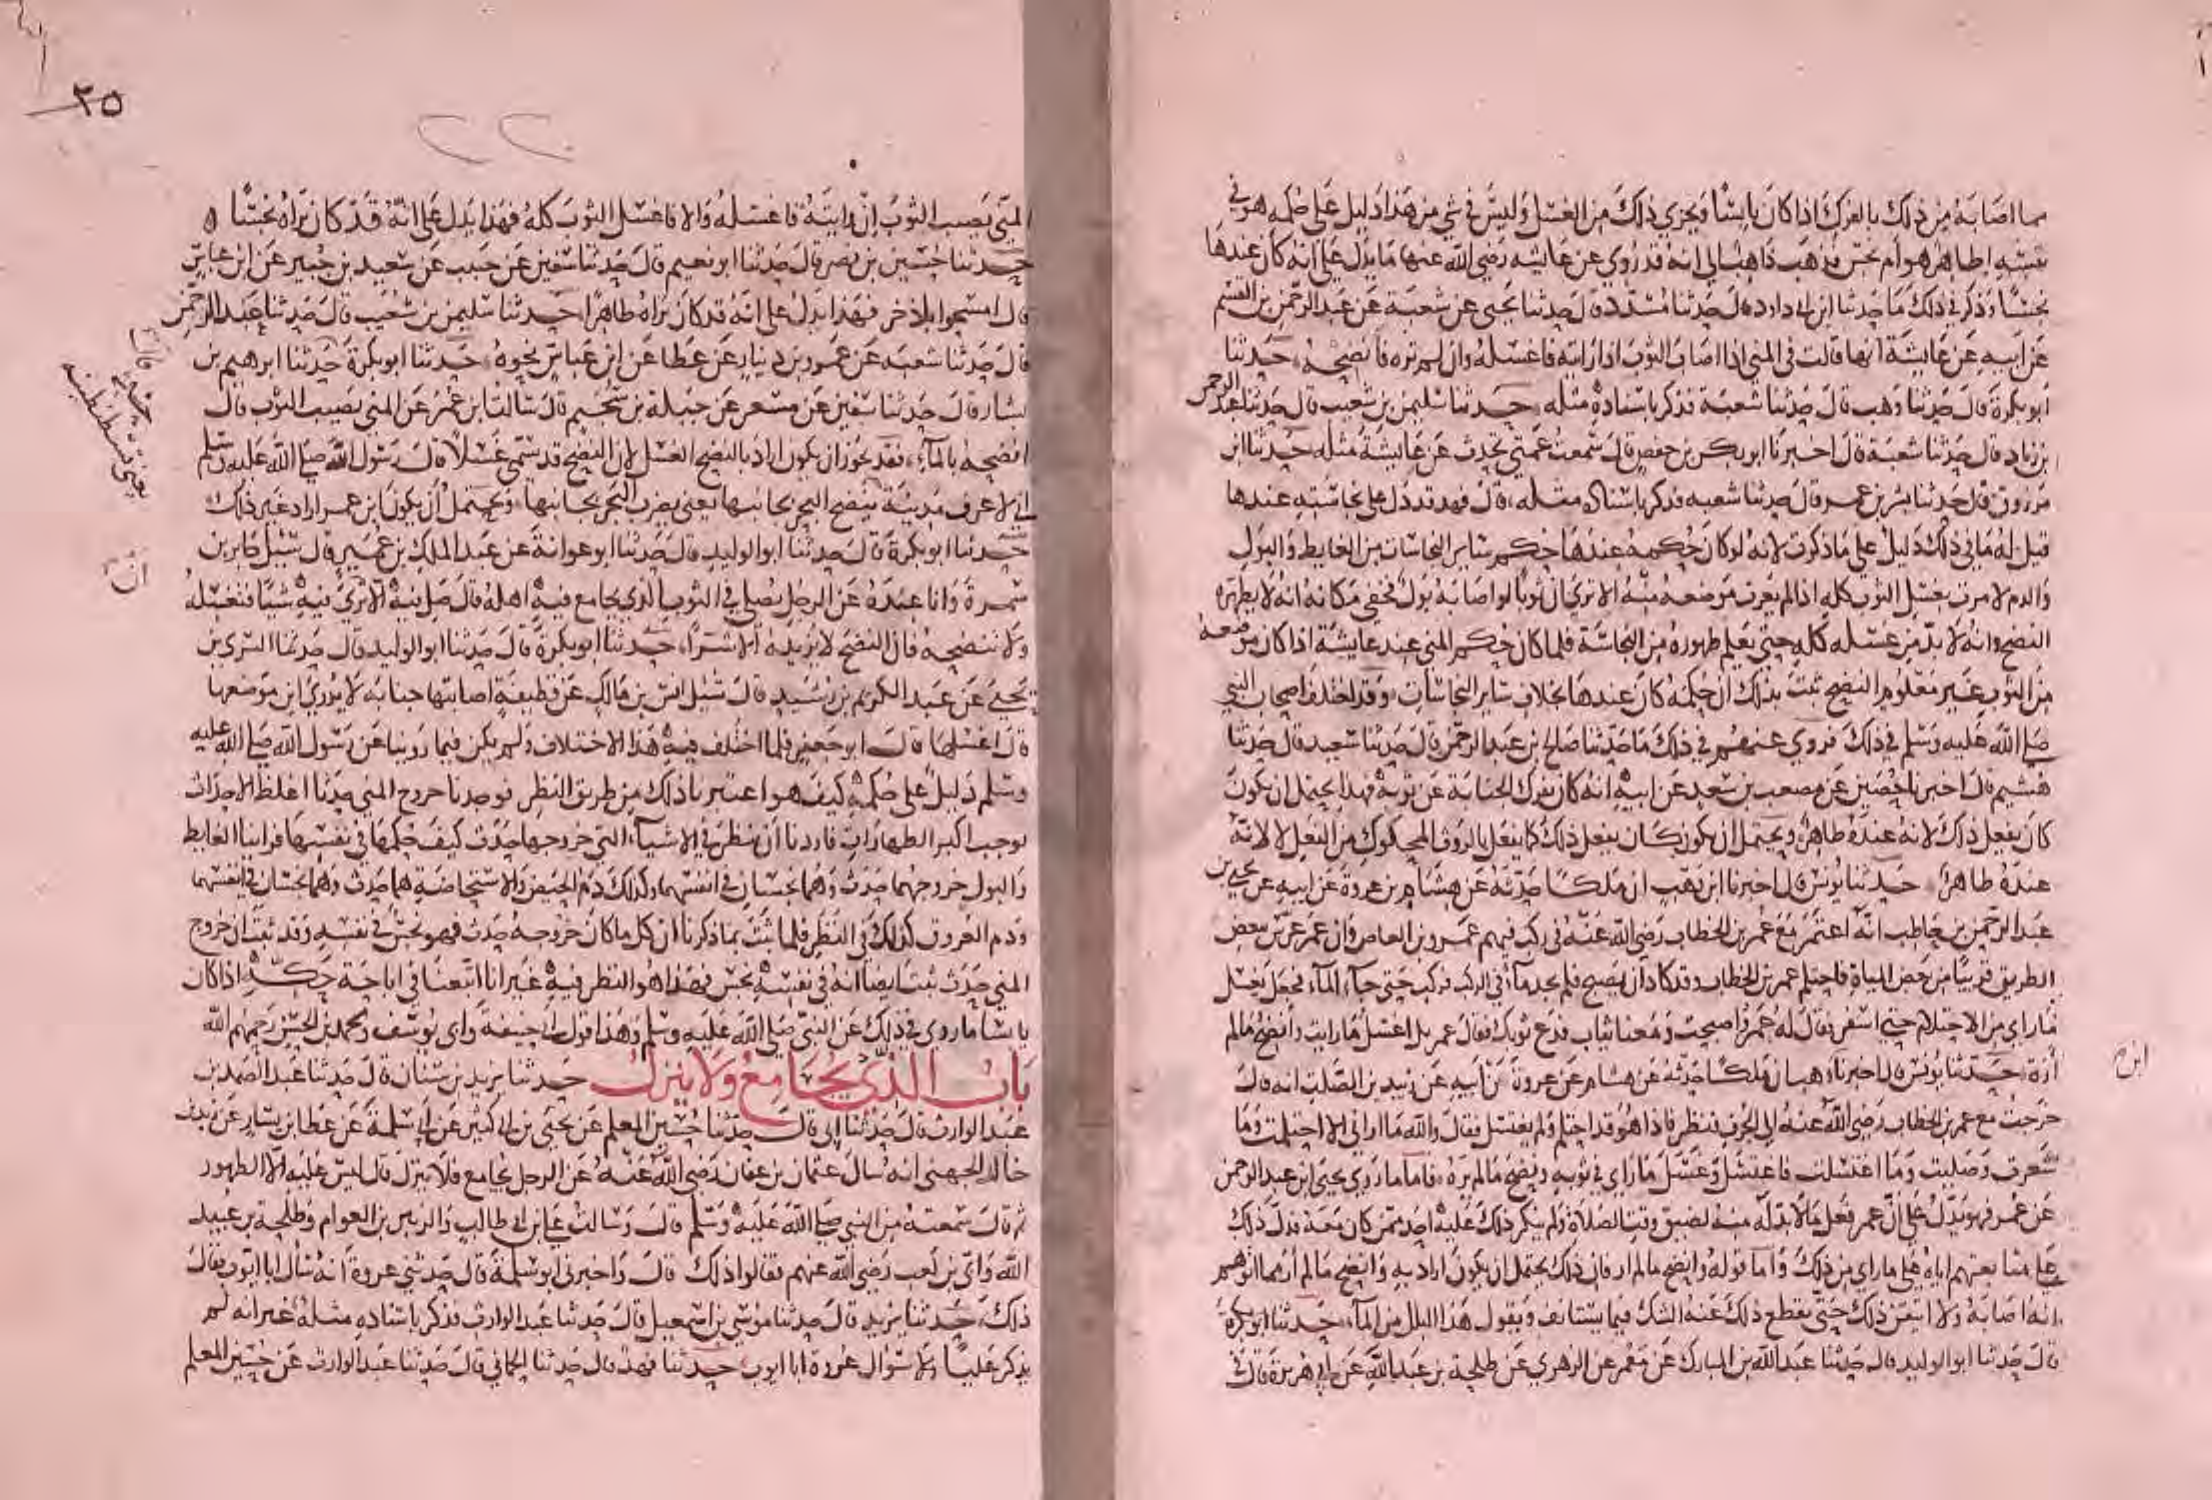 مما اصابه من ذلك بالفرك اذا كان يابسا ويجزي ذلك من الغسل وليس في شي من هذا دليل على حكمه هو في
نفسه اطاهر هو ام نجس فذهب ذاهب الى انه قد روي عن عايشه رضي الله عنها ما يدل على انه كان عندها
نجسا وذكر في ذلك ما حدثنا ابن ابي داود قال حدثنا مسدد قال حدثنا يحيى عن شعبة عن عبد الرحمن بن القسم
عن ابيه عن عايشة انها قالت في المني اذا اصاب الثوب اذا رايته فاغسله وان لم تره فانضحه حدثنا
ابو بكرة قال حدثنا وهب قال حدثنا شعبة فذكر باسناده مثله حدثنا سليمن بن شعيب قال حدثنا عبد الرحمن
بن زياد قال حدثنا شعبة قال اخبرنا ابو بكر بن حفص قال سمعت عمتي تحدث عن عايشة مثله حدثنا ابن
مرزوق قال حدثنا بشر بن عمر قال حدثنا شعبه فذكر باسناده مثله قال فهذ قد دل على نجاسته عندها
قيل له ما في ذلك دليل على ما ذكرت لانه لو كان حكمه عندها حكم ساير النجاسات من الغايط والبول
والدم لامرت بغسل الثوب كله اذا لم يعرف موضعه منه الا ترى ان ثوبا لو اصابه بول فخفي مكانه انه لا يطهره
النضح وانه لا بد من غسله كله حتى يعلم طهوره من النجاسة فلما كان حكم المني عند عايشة اذا كان موضعه
من الثوب غير معلوم النضح ثبت بذلك ان حكمه كان عندها بخلاف ساير النجاسات وقد اختلف اصحاب النبي
صلى الله عليه وسلم في ذلك فروي عنهم في ذلك ما حدثنا صالح بن عبد الرحمن قال حدثنا سعيد قال حدثنا
هشيم قال اخبرنا حصين عن مصعب بن سعد عن ابيه انه كان يفرك الجنابة عن ثوبه فهذا يحتمل ان يكون
كان يفعل ذلك لانه عنده طاهر ويحتمل ان يكون كان يفعل ذلك كما يفعل بالروث المحكوك من النعل لا لانه
عنده طاهر حدثنا يونس قال اخبرنا ابن وهب ان ملكا حدثه عن هشام بن عروة عن ابيه عن يحيى بن
عبد الرحمن بن حاطب انه اعتمر مع عمر بن الخطاب رضي الله عنه في ركب فيهم عمرو بن العاص وان عمر عرس ببعض
الطريق قريبا من بعض المياه فاحتلم عمر بن الخطاب وقد كاد ان يصبح فلم يجد ماء في الركب فركب حتى جاء الماء فجعل يغسل
ما راى من الاحتلام حتى اسفر فقال له عمرو اصبحت ومعنا ثياب فدع ثوبك فقال عمر بل اغسل ما رايت وانضح ما لم
اره حدثنا يونس قال اخبرنا وهب ان ملكا حدثه عن هشام عن عروة عن ابيه عن زبيد بن الصلت انه قال
ابن
خرجت مع عمر بن الخطاب رضي الله عنه الى الجرف فنظر فاذا هو قد احتلم ولم يغتسل فقال والله ما اراني الا احتلمت وما
شعرت وصليت وما اغتسلت فاغتسل وغسل ما راى في ثوبه ونضح ما لم يره فاما ما روى يحيى ابن عبد الرحمن
عن عمر فهو يدل على ان عمر فعل ما لا بد له منه لضيق وقت الصلاة ولم ينكر ذلك عليه احد ممن كان معه فدل ذلك
على متابعتهم اياه على ما راى من ذلك واما قوله وانضح ما لم ار فان ذلك يحتمل ان يكون اراد به وانضح ما لم ار مما اتوهم
انه اصابه ولا اتيقن ذلك حتى يقطع ذلك عنه الشك فيما يستانف ويقول هذا البلل من الماء حدثنا ابو بكرة
قال حدثنا ابو الوليد قال حدثنا عبد الله بن المبارك عن معمر عن الزهري عن طلحة بن عبد الله عن ابي هريرة قال في
٢٥
المني يصيب الثوب ان رايته فاغسله والا فاغسل الثوب كله فهذا يدل على انه قد كان يراه نجسا
حدثنا حسين بن نصر قال حدثنا ابو نعيم قال حدثنا سفين عن حبيب عن سعيد بن جبير عن ابن عباس
قال امسحوا باذخر فهذا يدل على انه قد كان يراه طاهرا حدثنا سليمن بن شعيب قال حدثنا عبد الرحمن
قال حدثنا شعبه عن عمرو بن دينار عن عطا عن ابن عباس نحوه حدثنا ابو بكرة حدثنا ابرهيم بن
بشار قال حدثنا سفين عن مسعر عن جبلة بن سحيم قال سالت ابن عمر عن المني يصيب الثوب قال
انضحه بالماء فقد يجوز ان يكون اراد بالنضح الغسل لان النضح قد سمي غسلا قال رسول الله صلى الله عليه وسلم
اني لاعرف مدينة ينضح البحر بجانبها يعني يضرب البحر بجانبها ويحتمل ان يكون ابن عمر اراد غير ذلك
يعني قسطنطينية
حدثنا ابو بكرة قال حدثنا ابو الوليد قال حدثنا ابو عوانة عن عبد الملك بن عمير قال سئل جابر بن
سمرة وانا عنده عن الرجل يصلي في الثوب الذي يجامع فيه اهله قال صل فيه الا ان ترى فيه شيا فتغسله
ولا تنضحه فان النضح لا يزيده الا شرا حدثنا ابو بكرة قال حدثنا ابو الوليد قال حدثنا السري بن
يحيى عن عبد الكريم بن رشيد قال سئل انس بن مالك عن قطيفة اصابتها جنابة لا يدري اين موضعها
قال اغسلها قال ابو جعفر فلما اختلف فيه هذا الاختلاف ولم يكن فيما روينا عن رسول الله صلى الله عليه
وسلم دليل على حكمه كيف هو اعتبرنا ذلك من طريق النظر فوجدنا خروج المني حدثا اغلظ الاحداث
يوجب اكبر الطهارات فاردنا ان ننظر في الاشياء التي خروجها حدث كيف حكمها في نفسها فراينا الغايط
والبول خروجهما حدث وهما نجسان في انفسهما وكذلك دم الحيض والاستحاضة هما حدث وهما نجسان في انفسهما
ودم العروق كذلك في النظر فلما ثبت بما ذكرنا ان كل ما كان خروجه حدث فهو نجس في نفسه وقد ثبت ان خروج
المني حدث ثبت ايضا انه في نفسه نجس فهذا هو النظر فيه غير انا اتبعنا في اباحة حكه اذا كان
يابسا ما روي في ذلك عن النبي صلى الله عليه وسلم وهذا قول ابي حنيفة وابي يوسف ومحمد بن الحسن رحمهم الله
باب الذي يجامع ولا ينزل حدثنا يزيد بن سنان قال حدثنا عبد الصمد بن
عبد الوارث قال حدثنا ابي قال حدثنا حسين المعلم عن يحيى بن ابي كثير عن ابي سلمة عن عطا بن يسار عن زيد بن
خالد الجهني انه سال عثمان بن عفان رضي الله عنه عن الرجل يجامع فلا ينزل قال ليس عليه الا الطهور
ثم قال سمعته من النبي صلى الله عليه وسلم قال وسالت علي بن ابي طالب والزبير بن العوام وطلحة بن عبيد
الله وابي بن كعب رضي الله عنهم فقالوا ذلك قال واخبرني ابو سلمة قال حدثني عروة انه سال ابا ايوب فقال
ذلك حدثنا يزيد قال حدثنا موسى بن اسمعيل قال حدثنا عبد الوارث فذكر باسناده مثله غير انه لم
يذكر عليا ولا سؤال عروة ابا ايوب حدثنا فهد قال حدثنا الحماني قال حدثنا عبد الوارث عن حسين المعلم